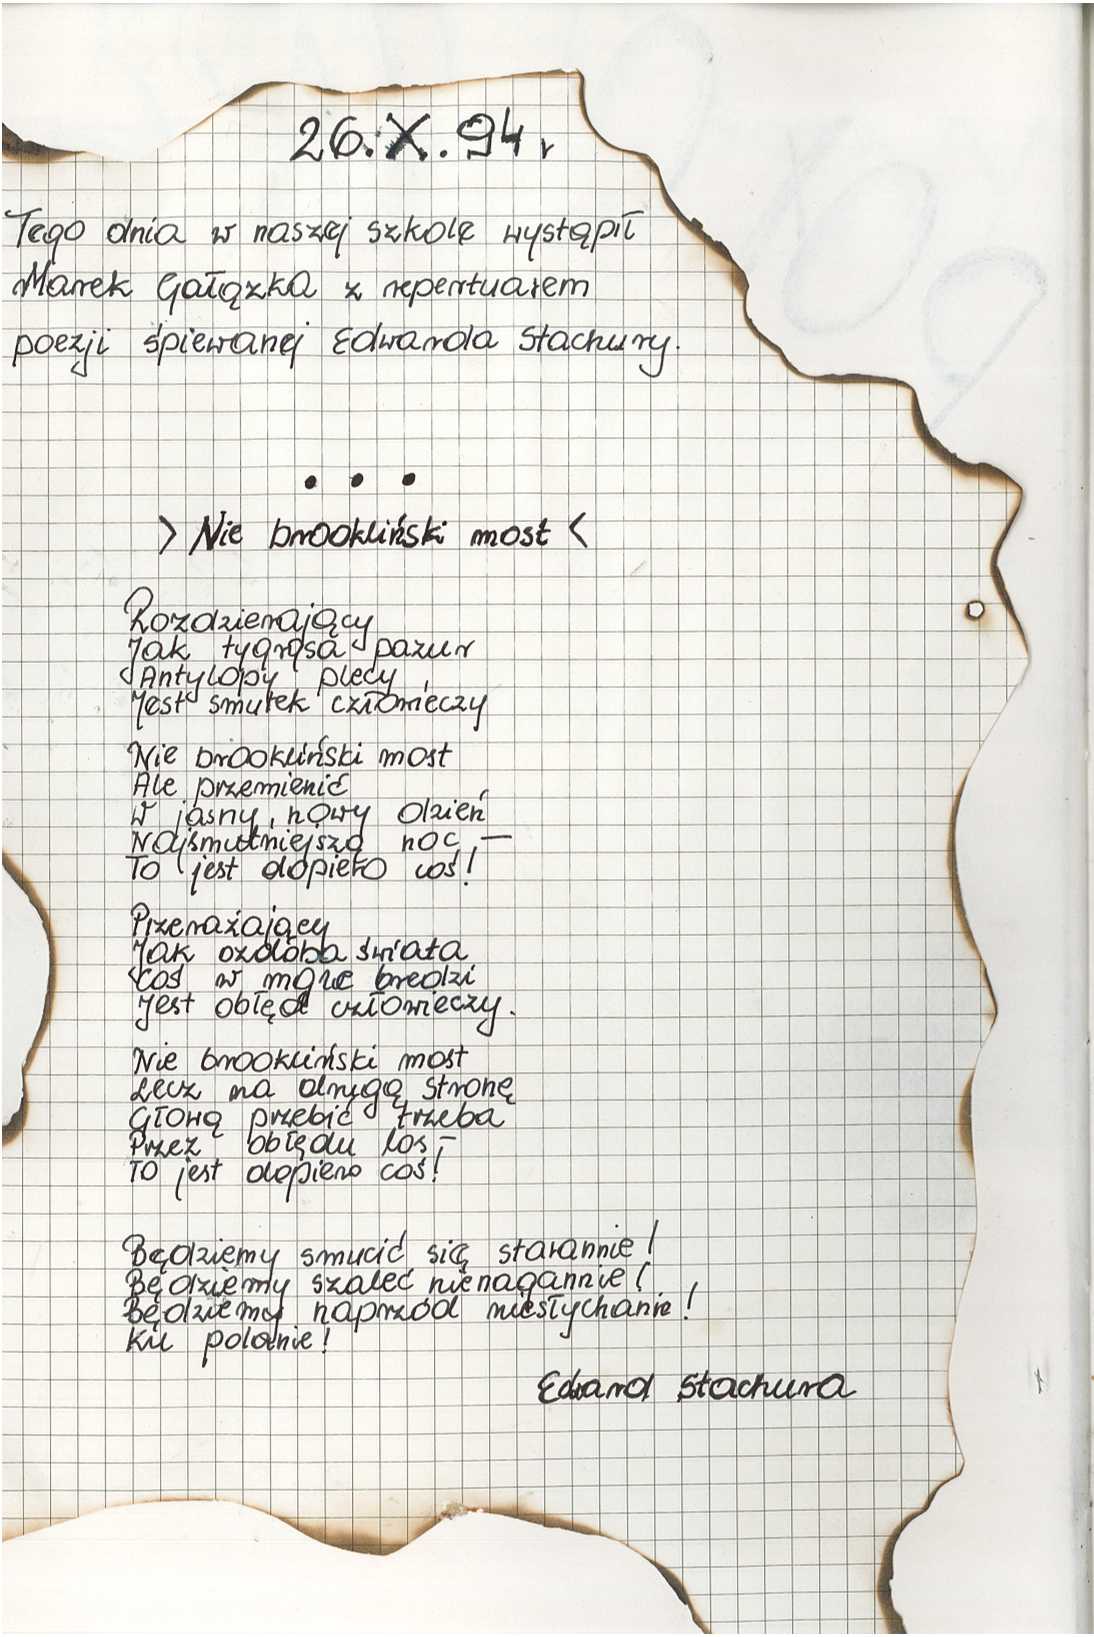 26.X.94 r
Tego dnia w naszej szkole wystąpił
Marek Gałązka z repertuarem
poezji śpiewanej Edwarda Stachury.
• • •
> Nie brookliński most <
Rozdzierający
Jak tygrysa pazur
Antylopy plecy,
Jest smutek człowieczy
Nie brookliński most
Ale przemienić
W jasny, nowy dzień
Najsmutniejszą noc –
To jest dopiero coś!
Przerażający
Jak ozdoba świata
Coś w mgle bredzi
Jest obłęd człowieczy.
Nie brookliński most
Lecz na drugą stronę
Głową przebić trzeba
Przez obłędu los –
To jest dopiero coś!
Będziemy smucić się starannie!
Będziemy szaleć nienagannie!
Będziemy naprzód niesłychanie!
Ku polanie!
Edward Stachura